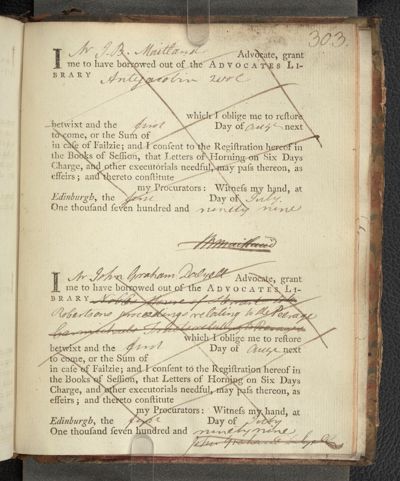 303.
I Mr J. B. Maitland Advocate, grant
me to have borrowed out of the ADVOCATES LI-
BRARY Antijacobin 2 vol
which I oblige me to reſtore
betwixt and the first Day of Augt next
to come, or the Sum of
in caſe of Failzie; and I conſent to the Regiſtration hereof in
the Books of Seſſion, that Letters of Horning on Six Days
Charge, and other executorials needful, may paſs thereon, as
effeirs; and thereto conſtitute
my Procurators: Witneſs my hand, at
Edinburgh, the first Day of July
One thouſand ſeven hundred and ninety nine
JB Maitland
I Mr John Graham Dalyell Advocate, grant
me to have borrowed out of the ADVOCATES LI-
BRARY
Robertsons proceedings relating to the Peerage
which I oblige me to reſtore
betwixt and the first Day of Augt next
to come, or the Sum of
in caſe of Failzie; and I conſent to the Regiſtration hereof in
the Books of Seſſion, that Letters of Horning on Six Days
Charge, and other executorials needful, may paſs thereon, as
effeirs; and thereto conſtitute
my Procurators: Witneſs my hand, at
Edinburgh, the first Day of July
One thouſand ſeven hundred and ninety nine
John Graham Dalyell